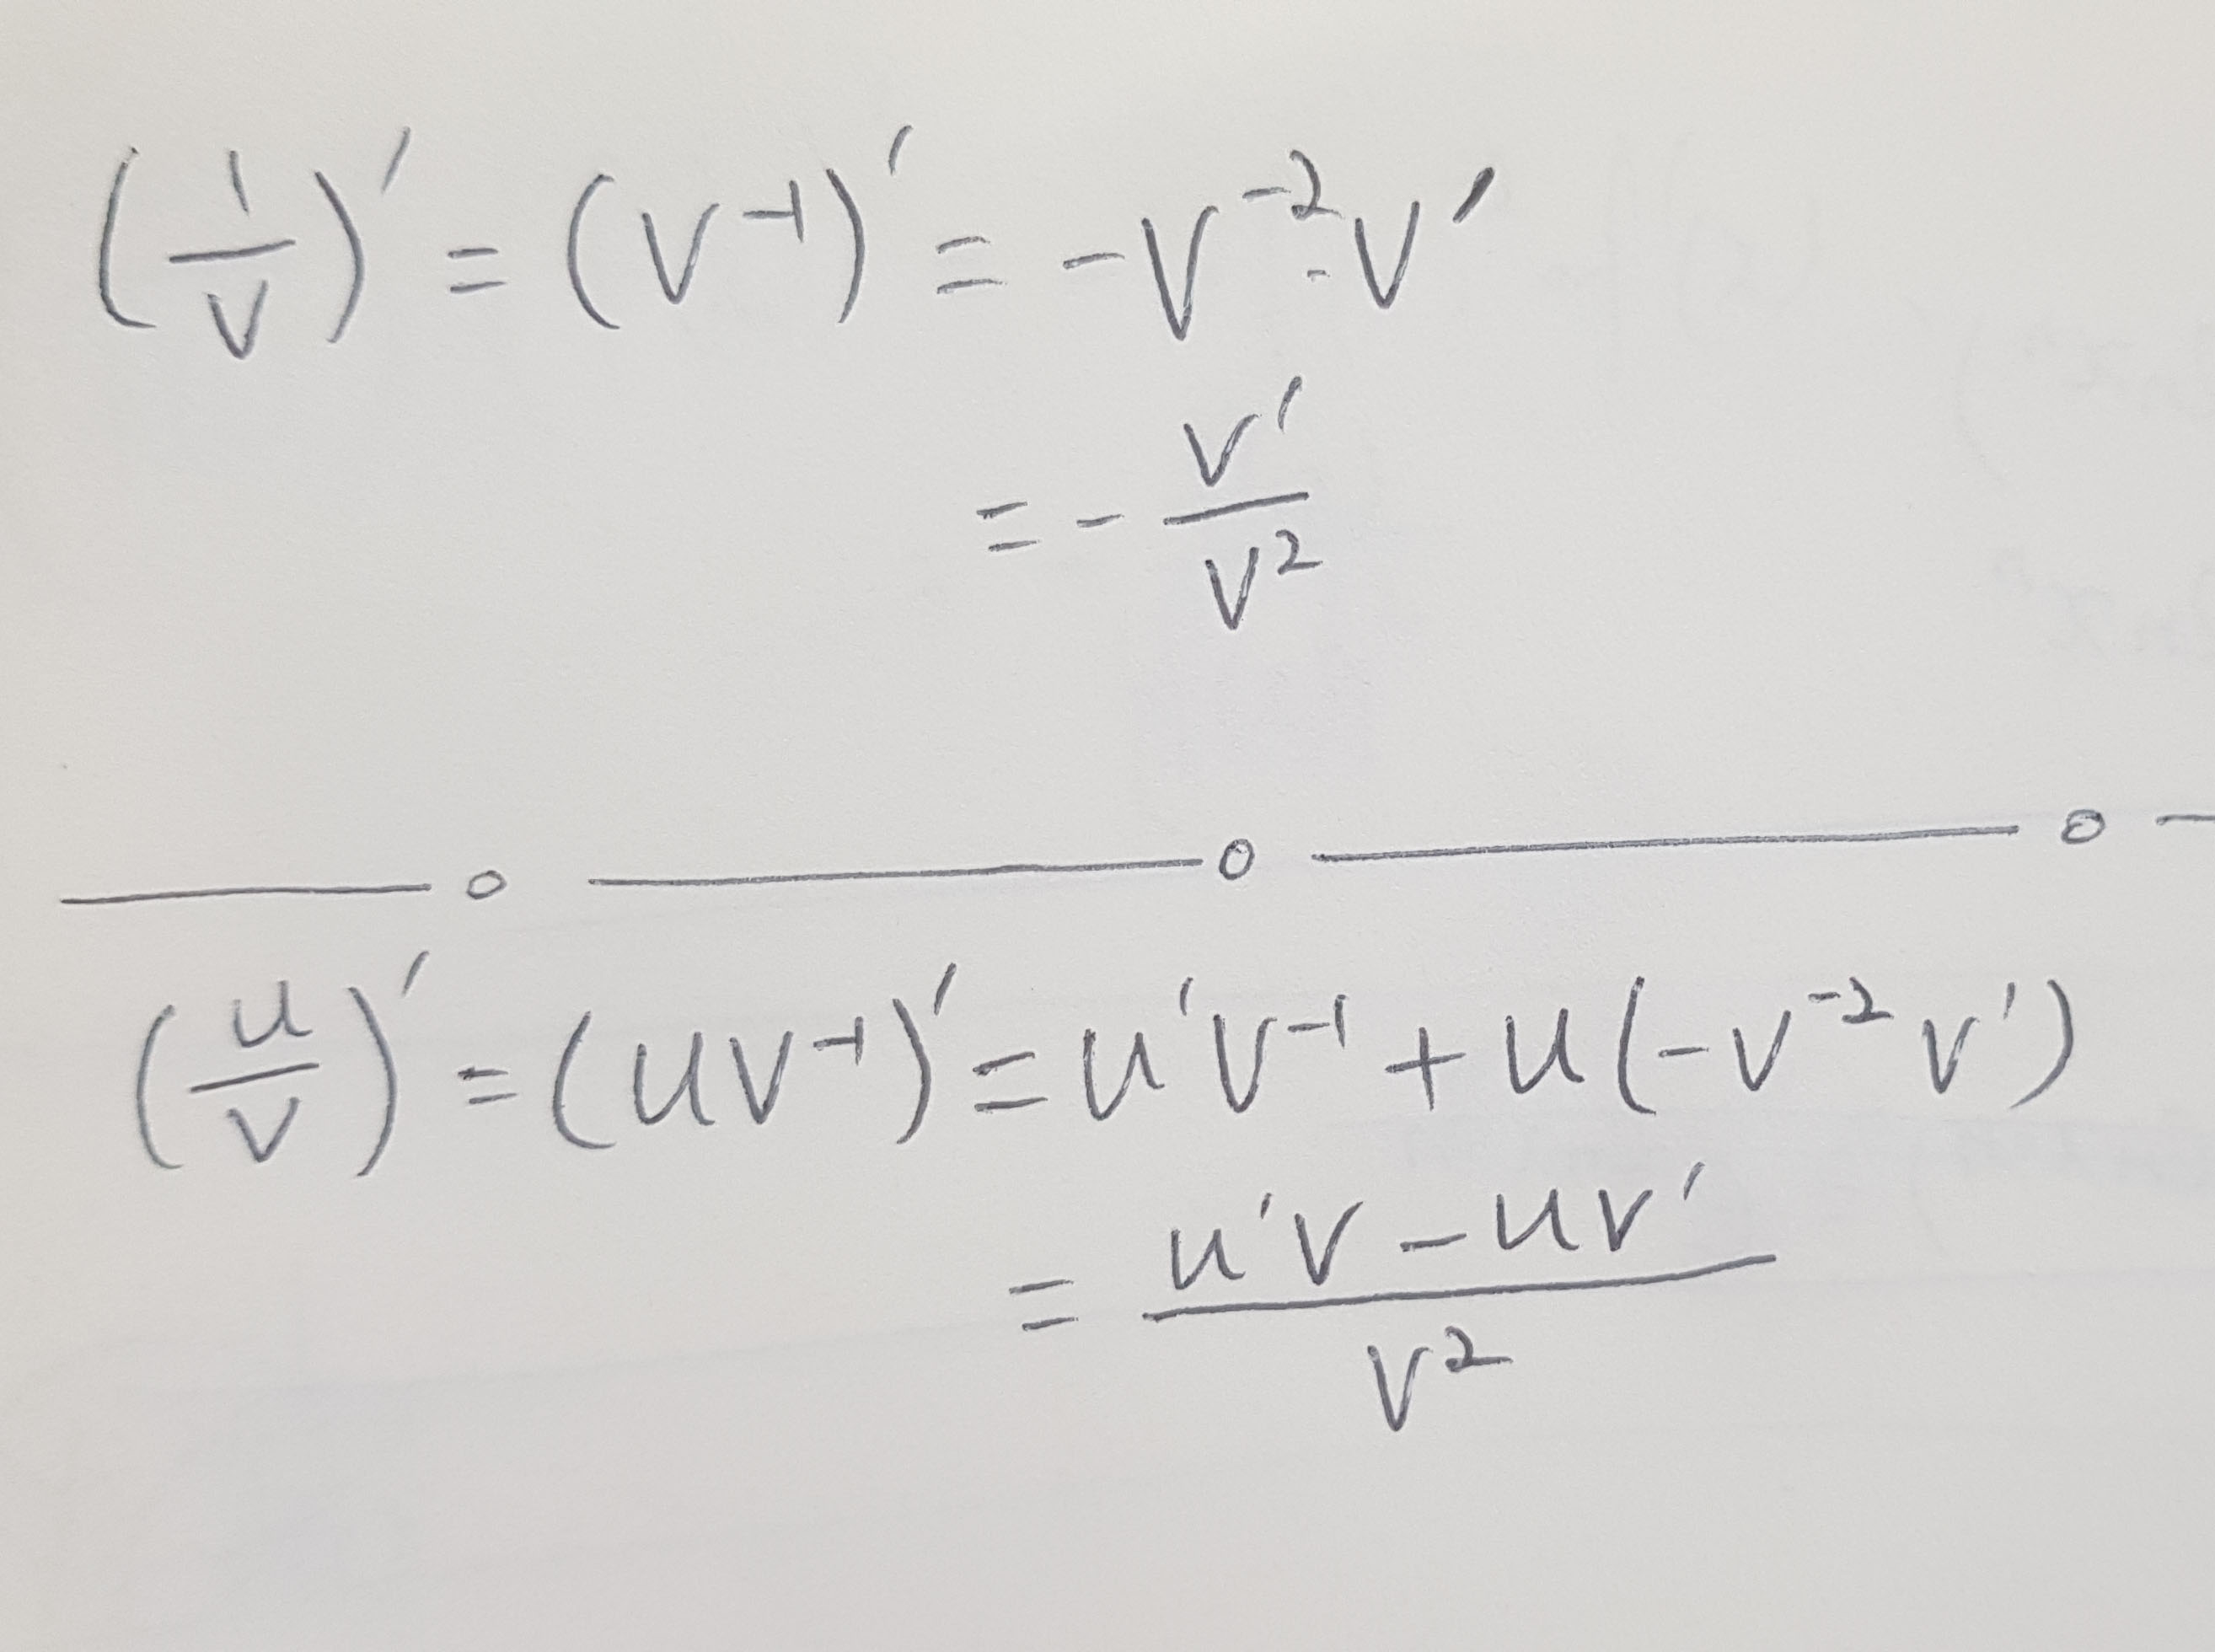 (1/v)′ = (v⁻¹)′ = -v⁻²·v′
= - v′/v²
(u/v)′ = (uv⁻¹)′ = u′v⁻¹ + u(-v⁻²v′)
= (u′v - uv′)/v²